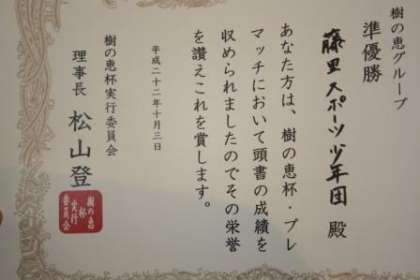 樹の恵グループ
準優勝
藤里スポーツ少年団 殿
あなた方は、樹の恵杯・プレ
マッチにおいて頭書の成績を
収められましたのでその栄誉
を讃えこれを賞します。
平成二十二年十月三日
樹の恵杯実行委員会
理事長 松山登
樹の恵
杯実行
委員会